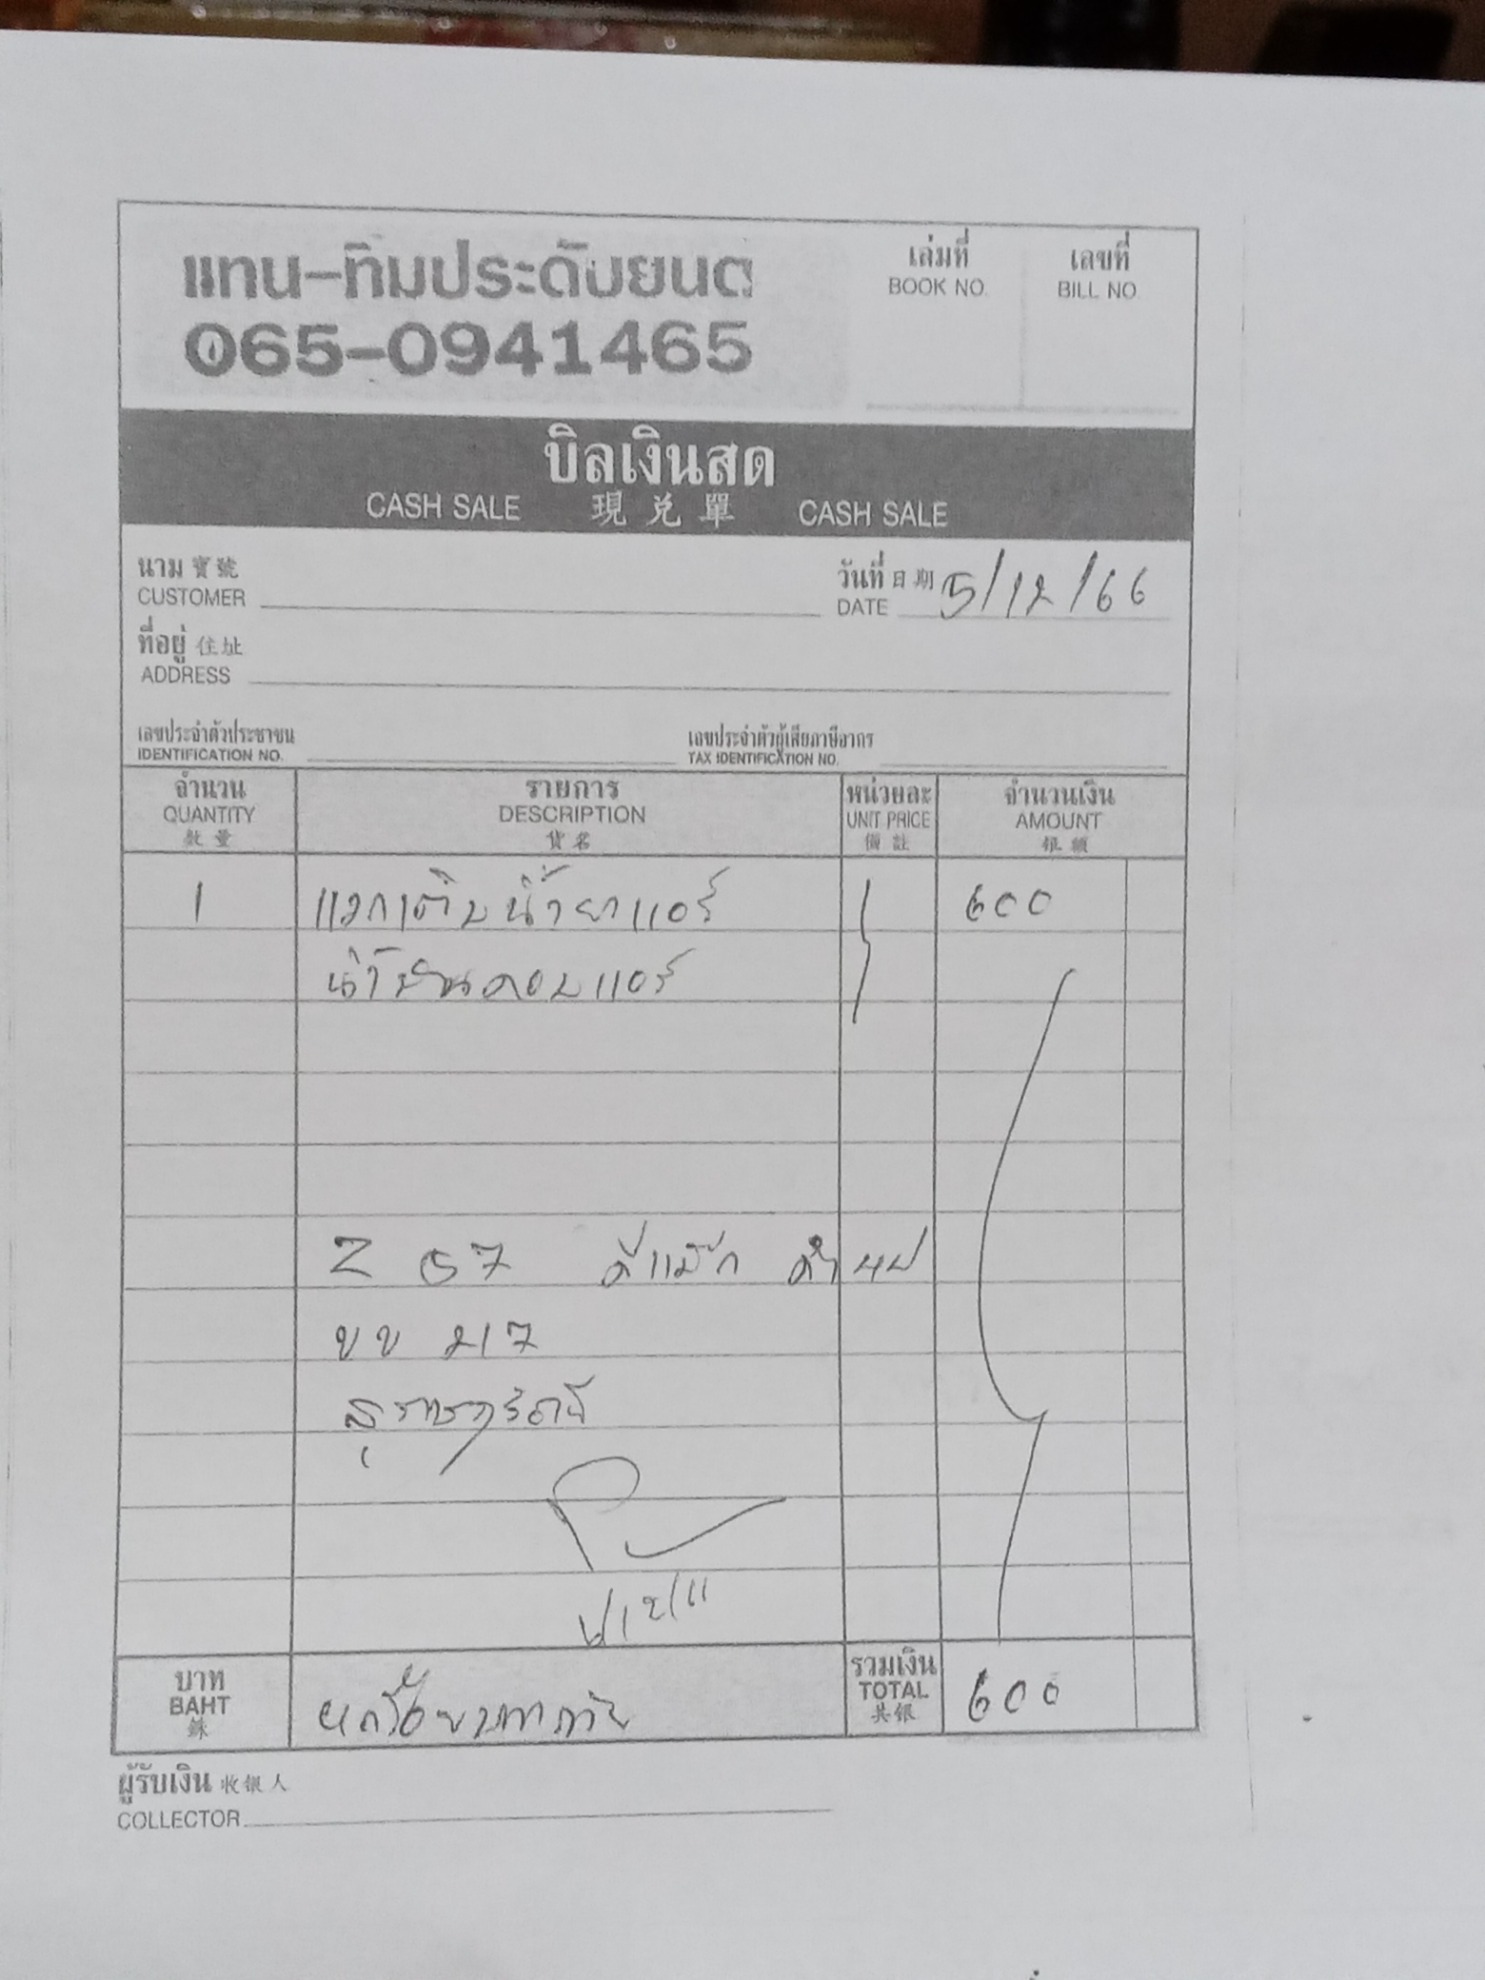 แทน-ทิมประดับยนต์
065-0941465
เล่มที่
BOOK NO.
เลขที่
BILL NO.
บิลเงินสด
CASH SALE 現兌單 CASH SALE
นาม 寶號
CUSTOMER
วันที่ 日期 5/12/66
DATE
ที่อยู่ 住址
ADDRESS
เลขประจำตัวประชาชน
IDENTIFICATION NO.
เลขประจำตัวผู้เสียภาษีอากร
TAX IDENTIFICATION NO.
จำนวน รายการ หน่วยละ จำนวนเงิน
QUANTITY DESCRIPTION UNIT PRICE AMOUNT
數量 貨名 備註 銀額
1 แวกเติมน้ำยาแอร์ 600
น้ำมันคอมแอร์
Z 67 ดีแม็ก ดำ 4ป
ขข 217
สุราษฎร์ธานี
บาท
BAHT
銖
หกร้อยบาทถ้วน
รวมเงิน
TOTAL 600
共銀
ผู้รับเงิน 收銀人
COLLECTOR